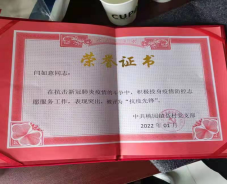 荣誉证书
同志:
在抗击新冠肺炎疫情的斗争中,积极投身疫情防控志
愿服务工作,表现突出,被评为“抗疫先锋”。
2022年01月